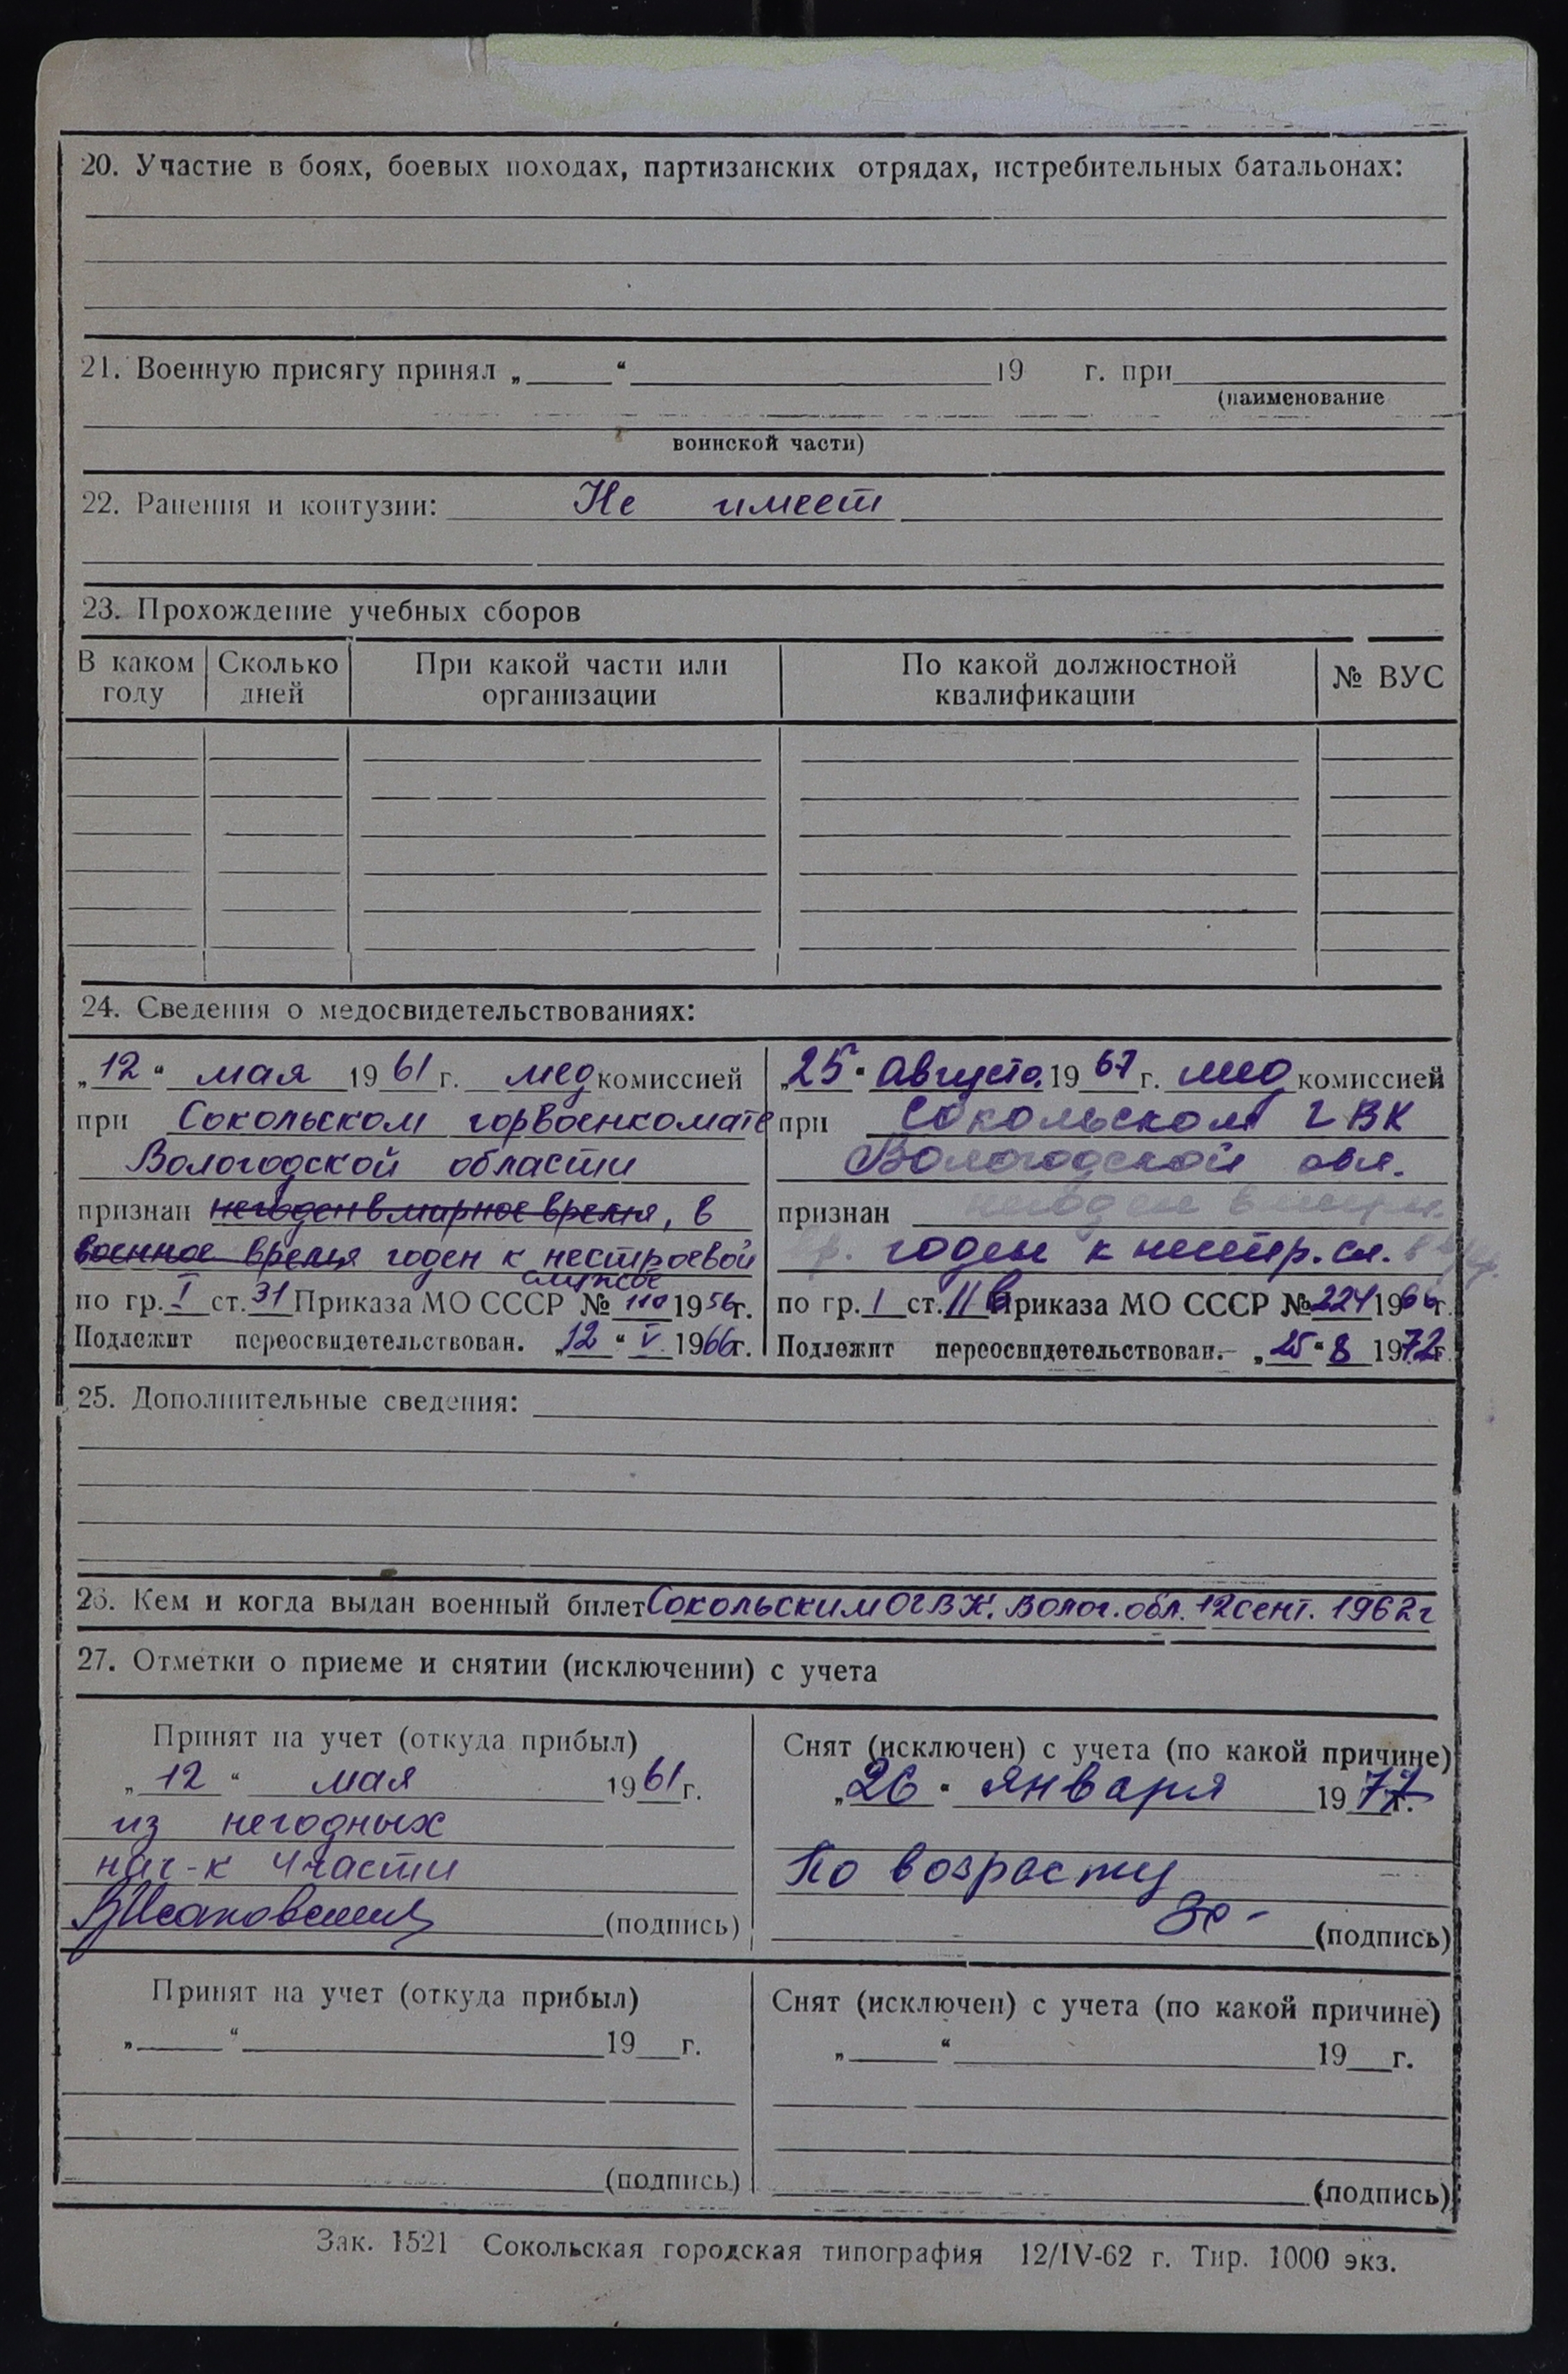 20. Участие в боях, боевых походах, партизанских отрядах, истребительных батальонах:
21. Военную присягу принял „ “ 19 г. при
(наименование
воинской части)
22. Ранения и контузии: Не имеет
23. Прохождение учебных сборов
В каком году Сколько дней При какой части или организации По какой должностной квалификации № ВУС
24. Сведения о медосвидетельствованиях:
„12“ мая 1961 г. мед комиссией
при Сокольском горвоенкомате
Вологодской области
признан негоден в мирное время, в
военное время годен к нестроевой
службе
по гр. I ст. 31 Приказа МО СССР № 110 1956г.
Подлежит переосвидетельствован. „12“ V. 1966г.
„25“ августа 1967 г. мед комиссией
при Сокольском ГВК
Вологодской обл.
признан негоден в мирн.
вр. годен к нестр. сл.
по гр. I ст. 11в Приказа МО СССР №224 1966г.
Подлежит переосвидетельствован. „25“ 8 1972г.
25. Дополнительные сведения:
26. Кем и когда выдан военный билет Сокольским ОГВК. Волог. обл. 12 сент. 1962г
27. Отметки о приеме и снятии (исключении) с учета
Принят на учет (откуда прибыл)
„12“ мая 1961г.
из негодных
нач-к 4 части
(подпись)
Снят (исключен) с учета (по какой причине)
„26“ января 1977г.
По возрасту
(подпись)
Принят на учет (откуда прибыл)
„ “ 19 г.
(подпись)
Снят (исключен) с учета (по какой причине)
„ “ 19 г.
(подпись)
Зак. 1521 Сокольская городская типография 12/IV-62 г. Тир. 1000 экз.